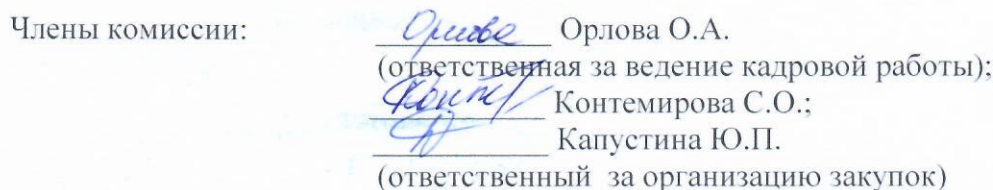 Члены комиссии: Орлова О.А.
(ответственная за ведение кадровой работы);
Контемирова С.О.;
Капустина Ю.П.
(ответственный за организацию закупок)